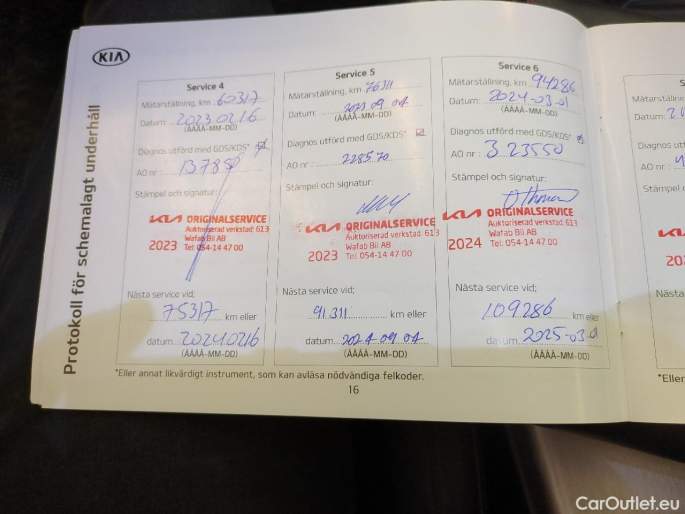 KIA
Protokoll för schemalagt underhåll
Service 4
Mätarställning, km 60317
Datum: 2023.02.16
(ÅÅÅÅ-MM-DD)
Diagnos utförd med GDS/KDS*
AO nr:
Stämpel och signatur:
KIA ORIGINALSERVICE
Auktoriserad verkstad: 613
Wafab Bil AB
2023 Tel: 054-14 47 00
Nästa service vid;
75317 km eller
datum 20240216
(ÅÅÅÅ-MM-DD)
Service 5
Mätarställning, km 76311
Datum: 2023 09 04
(ÅÅÅÅ-MM-DD)
Diagnos utförd med GDS/KDS*
AO nr: 228570
Stämpel och signatur:
KIA ORIGINALSERVICE
Auktoriserad verkstad: 613
Wafab Bil AB
2023 Tel: 054-14 47 00
Nästa service vid;
91 311 km eller
datum: 2024 09 04
(ÅÅÅÅ-MM-DD)
Service 6
Mätarställning, km 94286
Datum: 2024-03-01
(ÅÅÅÅ-MM-DD)
Diagnos utförd med GDS/KDS*
AO nr: 323550
Stämpel och signatur:
KIA ORIGINALSERVICE
Auktoriserad verkstad: 613
Wafab Bil AB
2024 Tel: 054-14 47 00
Nästa service vid;
109286 km eller
datum: 2025-03-01
(ÅÅÅÅ-MM-DD)
*Eller annat likvärdigt instrument, som kan avläsa nödvändiga felkoder.
16
CarOutlet.eu